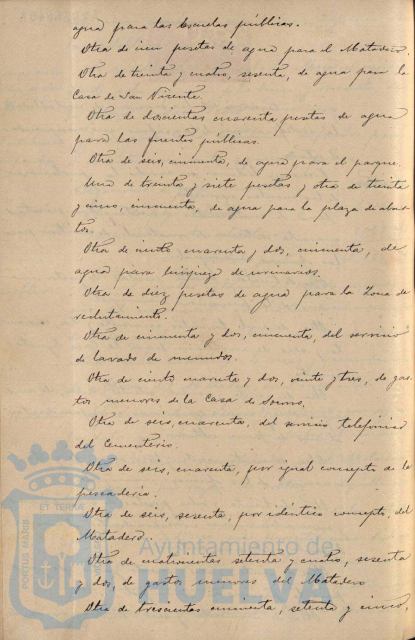 agua para las Escuelas públicas.
Otra de cien pesetas de agua para el Matadero.
Otra de treinta y cuatro, sesenta, de agua para la
Casa de San Vicente.
Otra de doscientas cuarenta pesetas de agua
para las fuentes públicas.
Otra de seis, cincuenta, de agua para el parque.
Una de treinta y siete pesetas y otra de treinta
y cinco, cincuenta, de agua para la plaza de abas-
tos.
Otra de ciento cuarenta y dos, cincuenta, de
agua para limpieza de urinarios.
Otra de diez pesetas de agua para la Zona de
reclutamiento.
Otra de cincuenta y dos, cincuenta, del servicio
de lavado de menudos.
Otra de ciento cuarenta y dos, veinte y tres, de gas-
tos menores de la Casa de Socorro.
Otra de seis, cuarenta, del servicio telefónico
del Cementerio.
Otra de seis, cuarenta, por igual concepto de la
pescadería.
Otra de seis, sesenta, por idéntico concepto, del
Matadero.
Otra de cuatrocientas setenta y cuatro, sesenta
y dos, de gastos menores del Matadero
Otra de trescientas cincuenta, setenta y cinco,
PORTUS MARIS
ET TERRAE
Ayuntamiento de
HUELVA